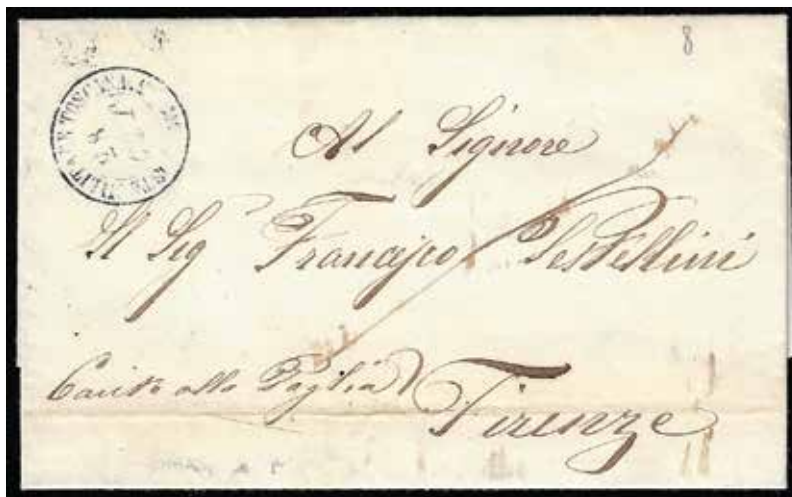 8
TOSCANA
Al Signore
Il Sigr Francesco Pestellini
Canto alla Paglia
Firenze